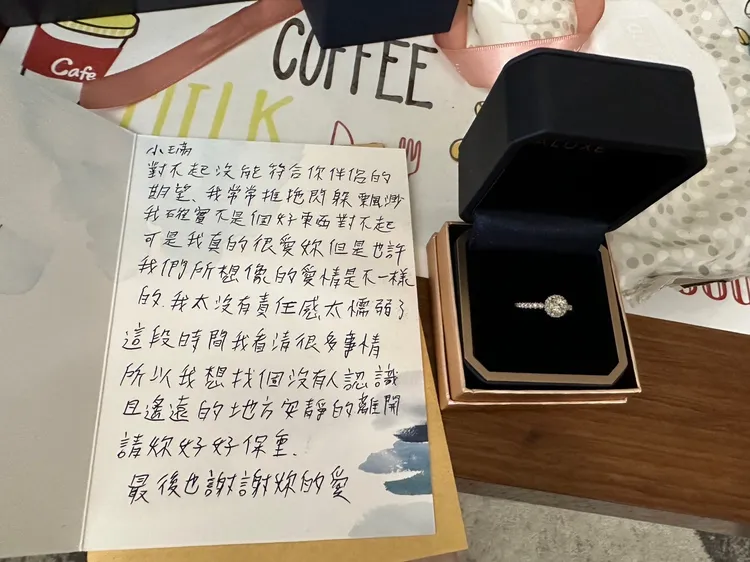 Cafe
COFFEE
MILK
小瑀
對不起沒能符合你伴侶的
期望、我常常推拖閃躲 飄渺
我確實不是個好東西對不起
可是我真的很愛妳但是也許
我們所想像的愛情是不一樣
的.我太沒有責任感太懦弱了
這段時間我看清很多事情
所以我想找個沒有人認識
且遙遠的地方安靜的離開
請妳好好保重、
最後也謝謝妳的愛